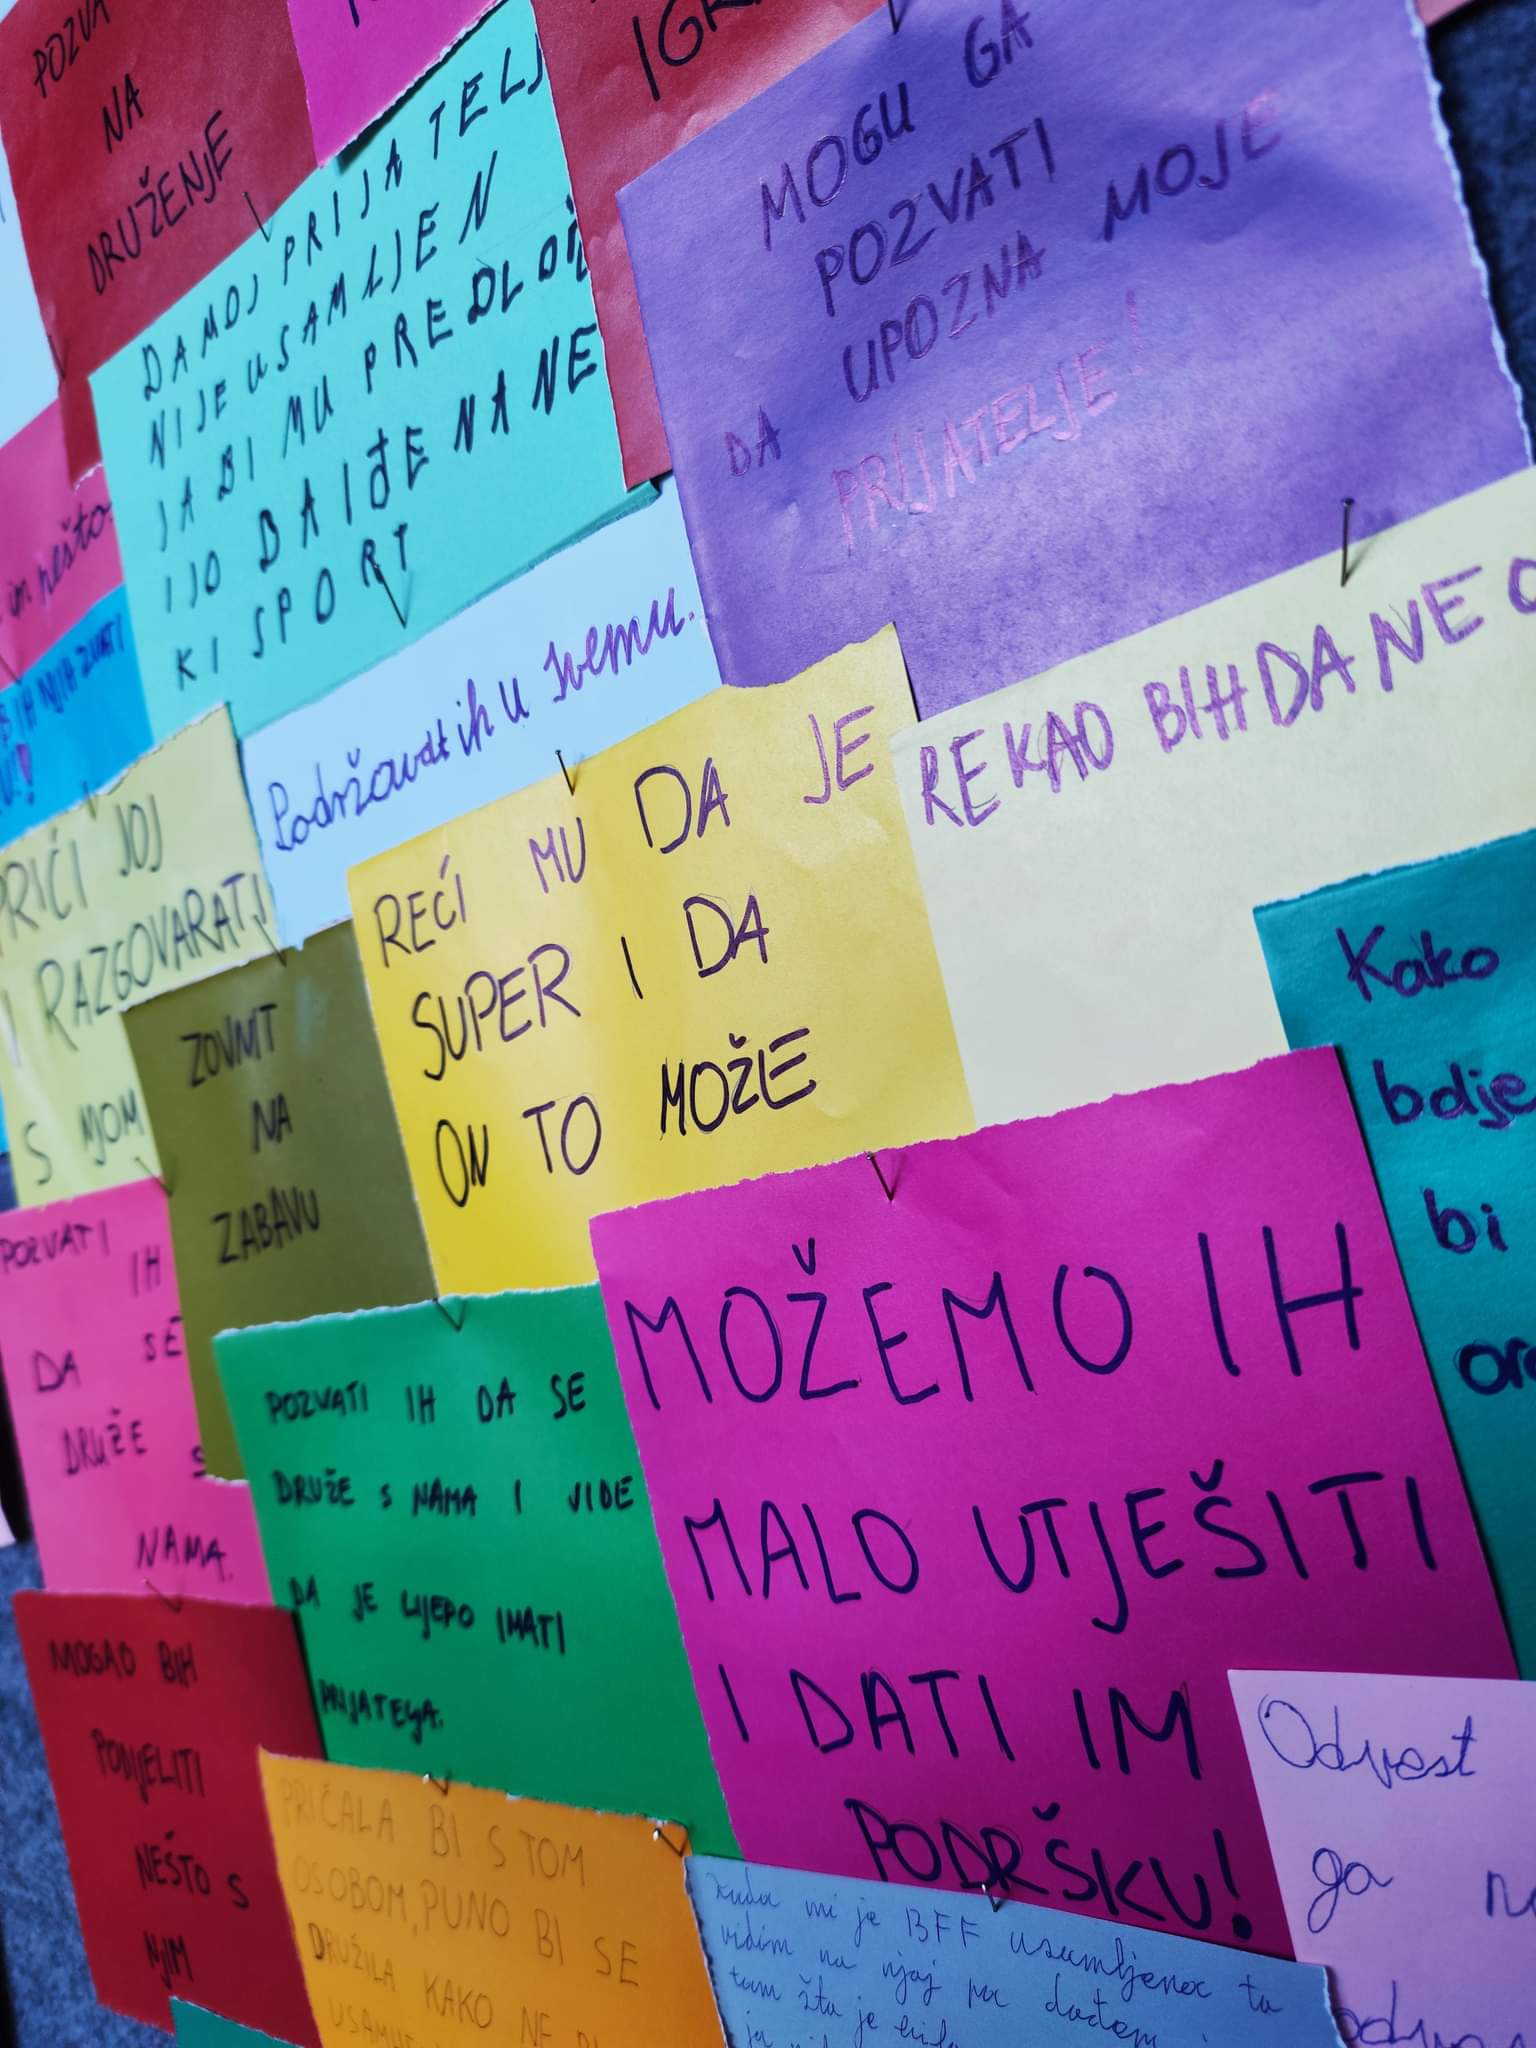 NA
DRUŽENJE
DA MOJ PRIJATELJ
NIJE USAMLJEN
JA BI MU PREDLOŽ
IJO DA IĐE NA NE
KI SPORT
MOGU GA
POZVATI
DA UPOZNA MOJE
PRIJATELJE!
im nešto.
BIH NJIH ZVATI
Podržavat ih u svemu.
REKAO BIH DA NE
PRIĆI JOJ
I RAZGOVARATI
S NJOM
REĆI MU DA JE
SUPER I DA
ON TO MOŽE
ZOVNIT
NA
ZABAVU
Kako
bolje
bi
POZVATI IH
DA SE
DRUŽE S
NAMA.
POZVATI IH DA SE
DRUŽE S NAMA I VIDE
DA JE LIJEPO IMATI
PRIJATELJA.
MOŽEMO IH
MALO UTJEŠITI
I DATI IM
PODRŠKU!
MOGAO BIH
PODIJELITI
NEŠTO S
NJIM
PRIČALA BI S TOM
OSOBOM, PUNO BI SE
DRUŽILA KAKO NE BI
Odvest
ga
kada mi je BFF usamljena to
vidim na njoj pa dođem
tam što je